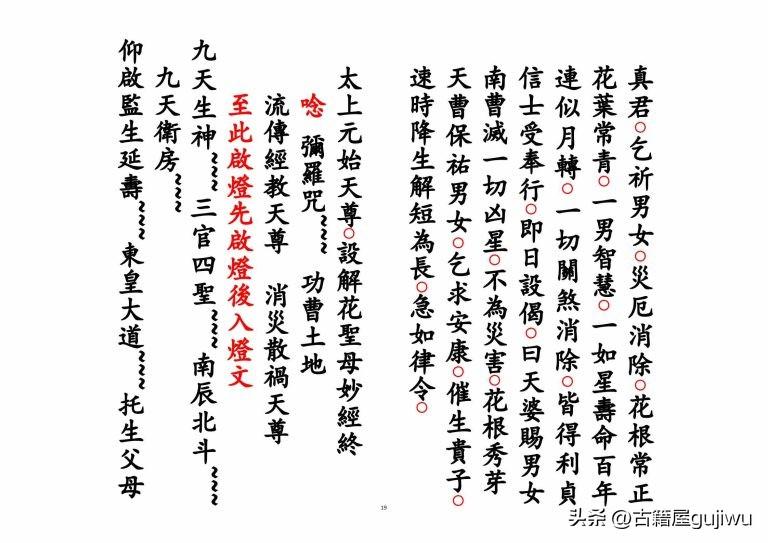 真君○乞祈男女○災厄消除○花根常正
花葉常青○一男智慧○一如星壽命百年
連似月轉○一切關煞消除○皆得利貞
信士受奉行○即日設偈○曰天婆賜男女
南曹滅一切凶星○不為災害○花根秀芽
天曹保祐男女○乞求安康○催生貴子○
速時降生解短為長○急如律令○
太上元始天尊○設解花聖母妙經終
唸 彌羅咒~~~ 功曹土地
流傳經教天尊 消災散禍天尊
至此啟燈先啟燈後入燈文
九天生神~~~ 三官四聖~~~ 南辰北斗~~~
九天衛房~~~
仰啟監生延壽~~~ 東皇大道~~~ 托生父母
19
头条 @古籍屋gujiwu